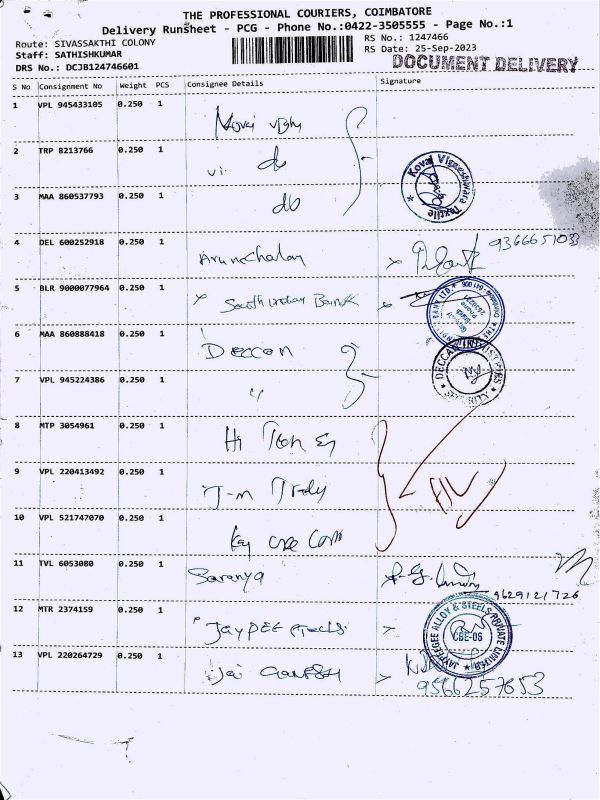 THE PROFESSIONAL COURIERS, COIMBATORE
Delivery Runsheet - PCG - Phone No.:0422-3505555 - Page No.:1
Route: SIVASSAKTHI COLONY
RS No.: 1247466
Staff: SATHISHKUMAR
RS Date: 25-Sep-2023
DRS No.: DCJB124746601
DOCUMENT DELIVERY
S No Consignment No Weight PCS Consignee Details Signature
1 VPL 945433105 0.250 1
2 TRP 8213766 0.250 1 do
3 MAA 860537793 0.250 1 do
Kovai Vigneshwara Textile
4 DEL 600252918 0.250 1 Arunachalam
5 BLR 9000077964 0.250 1 South Indian Bank
6 MAA 860888418 0.250 1 DECCAN
DECCAN INDUSTRIES
7 VPL 945224386 0.250 1 "
8 MTP 3054961 0.250 1 Hi
9 VPL 220413492 0.250 1
10 VPL 521747070 0.250 1
11 TVL 6053080 0.250 1 Saranya
9629121726
12 MTR 2374159 0.250 1 JAYPEE
JAYPEEGEE ALLOY & STEELS PRIVATE LIMITED
CBE-06
13 VPL 220264729 0.250 1 Jai GANESH
9566257653